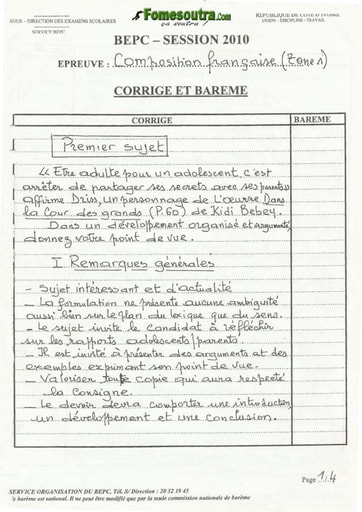 SOUS – DIRECTION DES EXAMENS SCOLAIRES
SERVICE BEPC
Fomesoutra.com
ça soutra !
REPUBLIQUE DE COTE D'IVOIRE
UNION – DISCIPLINE – TRAVAIL
BEPC – SESSION 2010
EPREUVE : Composition française (Zone 1)
CORRIGE ET BAREME
CORRIGE
BAREME
Premier sujet
« Etre adulte pour un adolescent, c'est
arrêter de partager ses secrets avec ses parents »
affirme Driss, un personnage de L'œuvre Dans
la Cour des grands (P.60) de Kidi Bebey.
Dans un développement organisé et argumenté,
donnez votre point de vue.
I Remarques générales
– Sujet intéressant et d'actualité
– La formulation ne présente aucune ambiguïté
aussi bien sur le plan du lexique que du sens.
– Le sujet invite le candidat à réfléchir
sur les rapports adolescents/parents.
– Il est invité à présenter des arguments et des
exemples exprimant son point de vue.
– Valoriser toute copie qui aura respecté
la consigne.
– Le devoir devra comporter une introduction,
un développement et une conclusion.
Page 1/4
SERVICE ORGANISATION DU BEPC, Tél. S/ Direction : 20 32 19 45
'e barème est national. Il ne peut être modifié que par la seule commission nationale de barème